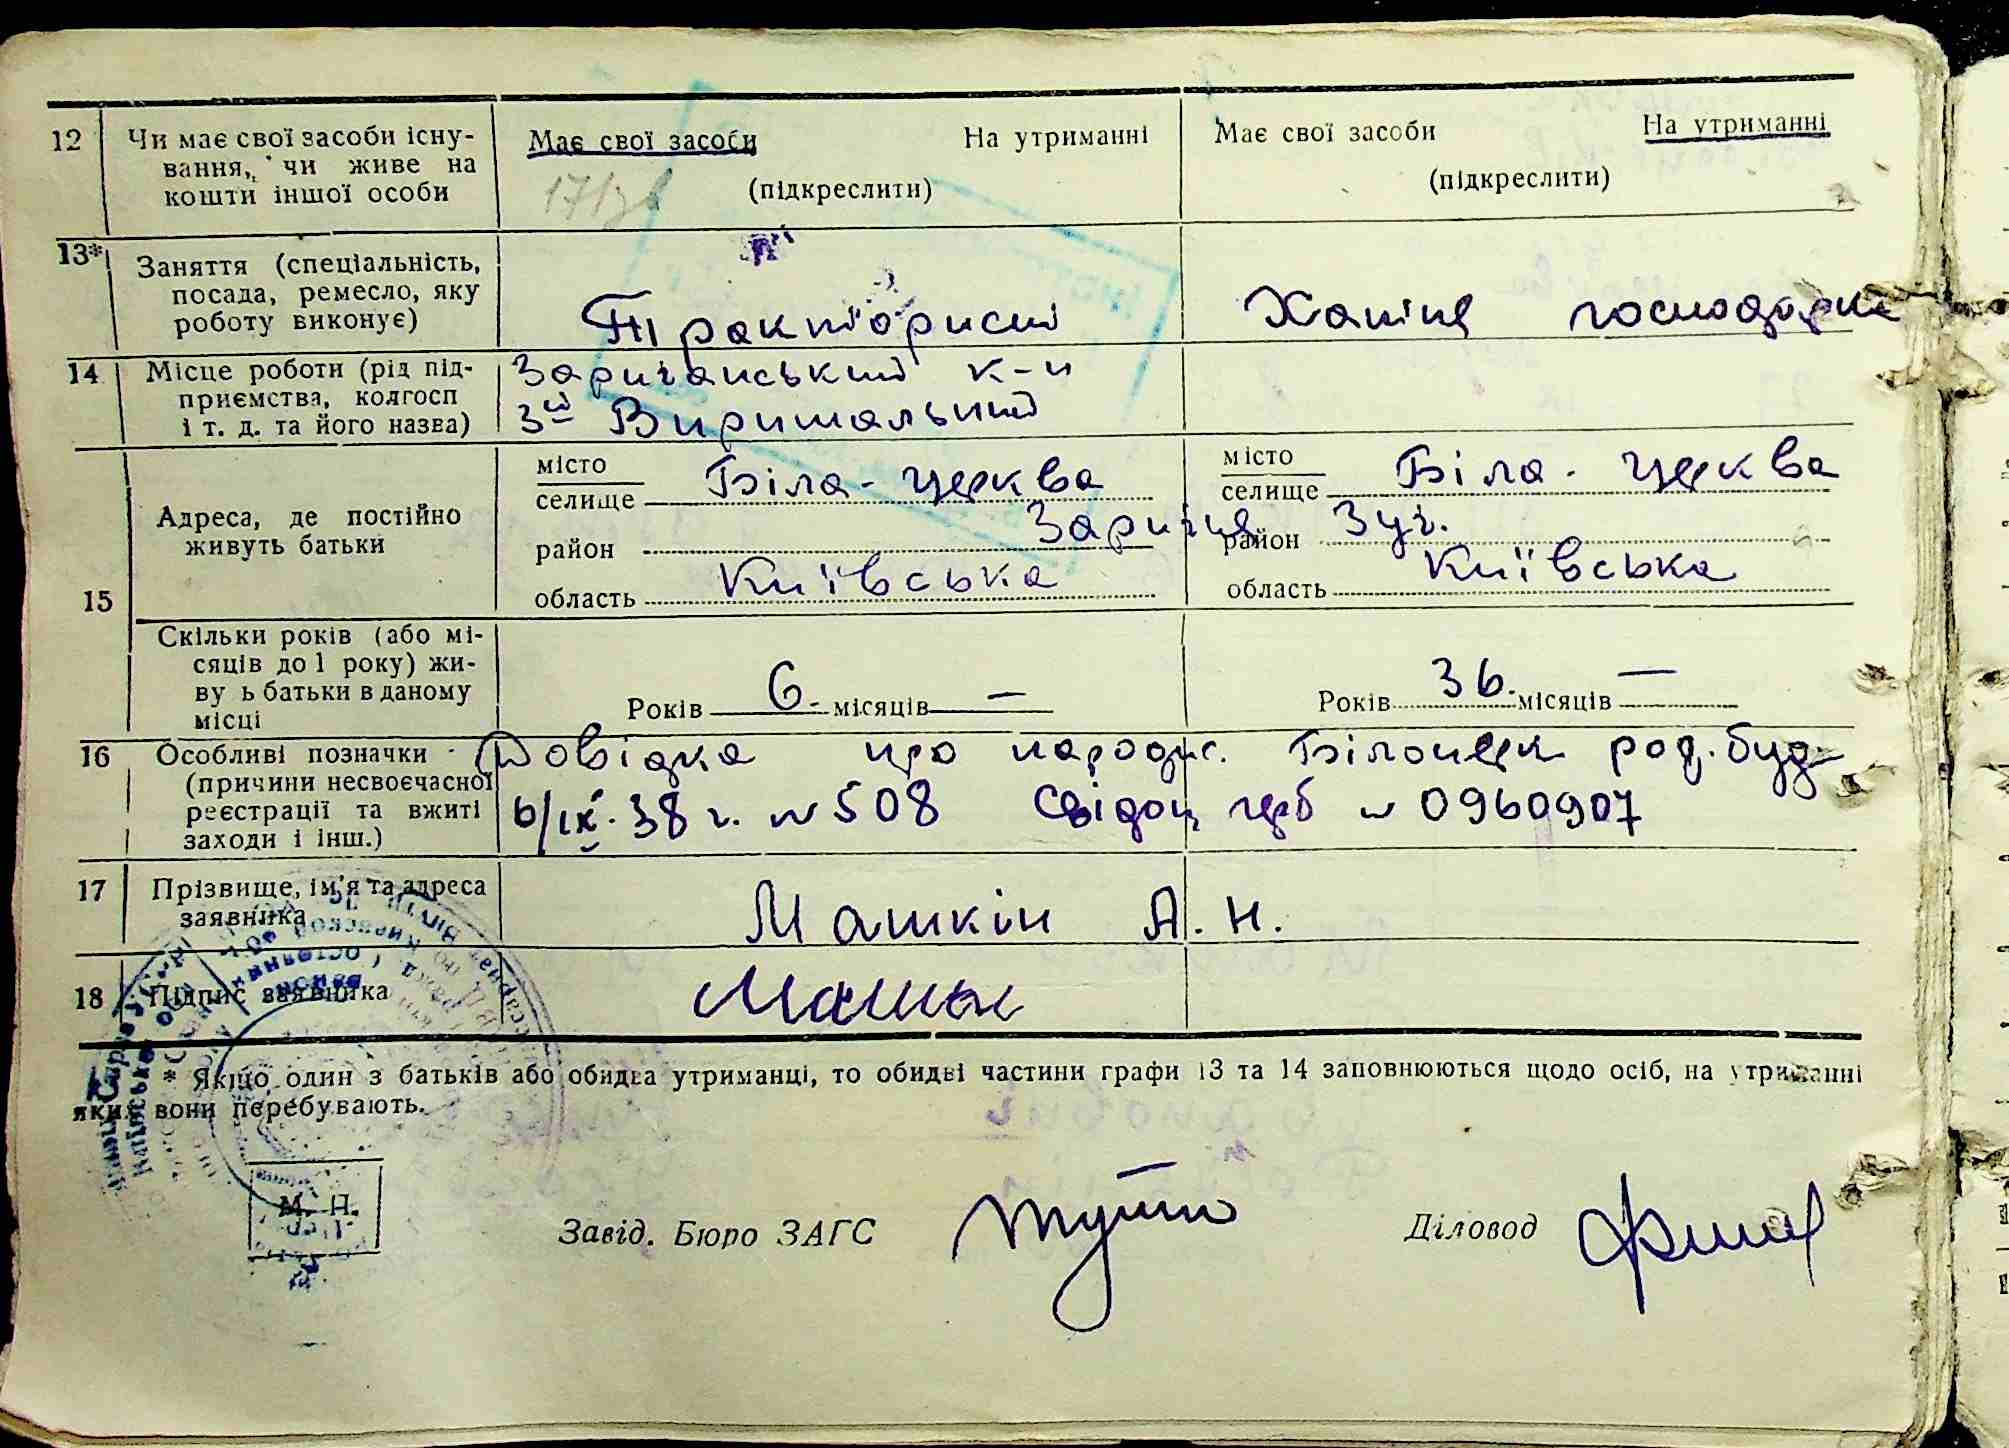 12 Чи має свої засоби існу-
вання, чи живе на
кошти іншої особи
Має свої засоби На утриманні
(підкреслити)
Має свої засоби На утриманні
(підкреслити)
13* Заняття (спеціальність,
посада, ремесло, яку
роботу виконує)
Тракторист
Хатня господарка
14 Місце роботи (рід під-
приємства, колгосп
і т. д. та його назва)
Заричанський к-п
3й Виришальний
15 Адреса, де постійно
живуть батьки
місто
селище Біла-церква
район Заричя
область Київська
місто
селище Біла-церква
район 3 уч.
область Київська
Скільки років (або мі-
сяців до 1 року) жи-
ву ь батьки в даному
місці
Років 6. місяців —
Років 36. місяців —
16 Особливі позначки
(причини несвоєчасної
реєстрації та вжиті
заходи і інш.)
Довідка про народж. Білоцерк род. буд.
6/IX. 38 г. № 508 Свідоц № 0960907
17 Прізвище, ім'я та адреса
заявника
Машкін А. Н.
18 Підпис заявника
*Якщо один з батьків або обидва утриманці, то обидві частини графи 13 та 14 заповнюються щодо осіб, на утриманні
яких вони перебувають.
М. П.
Завід. Бюро ЗАГС
Діловод